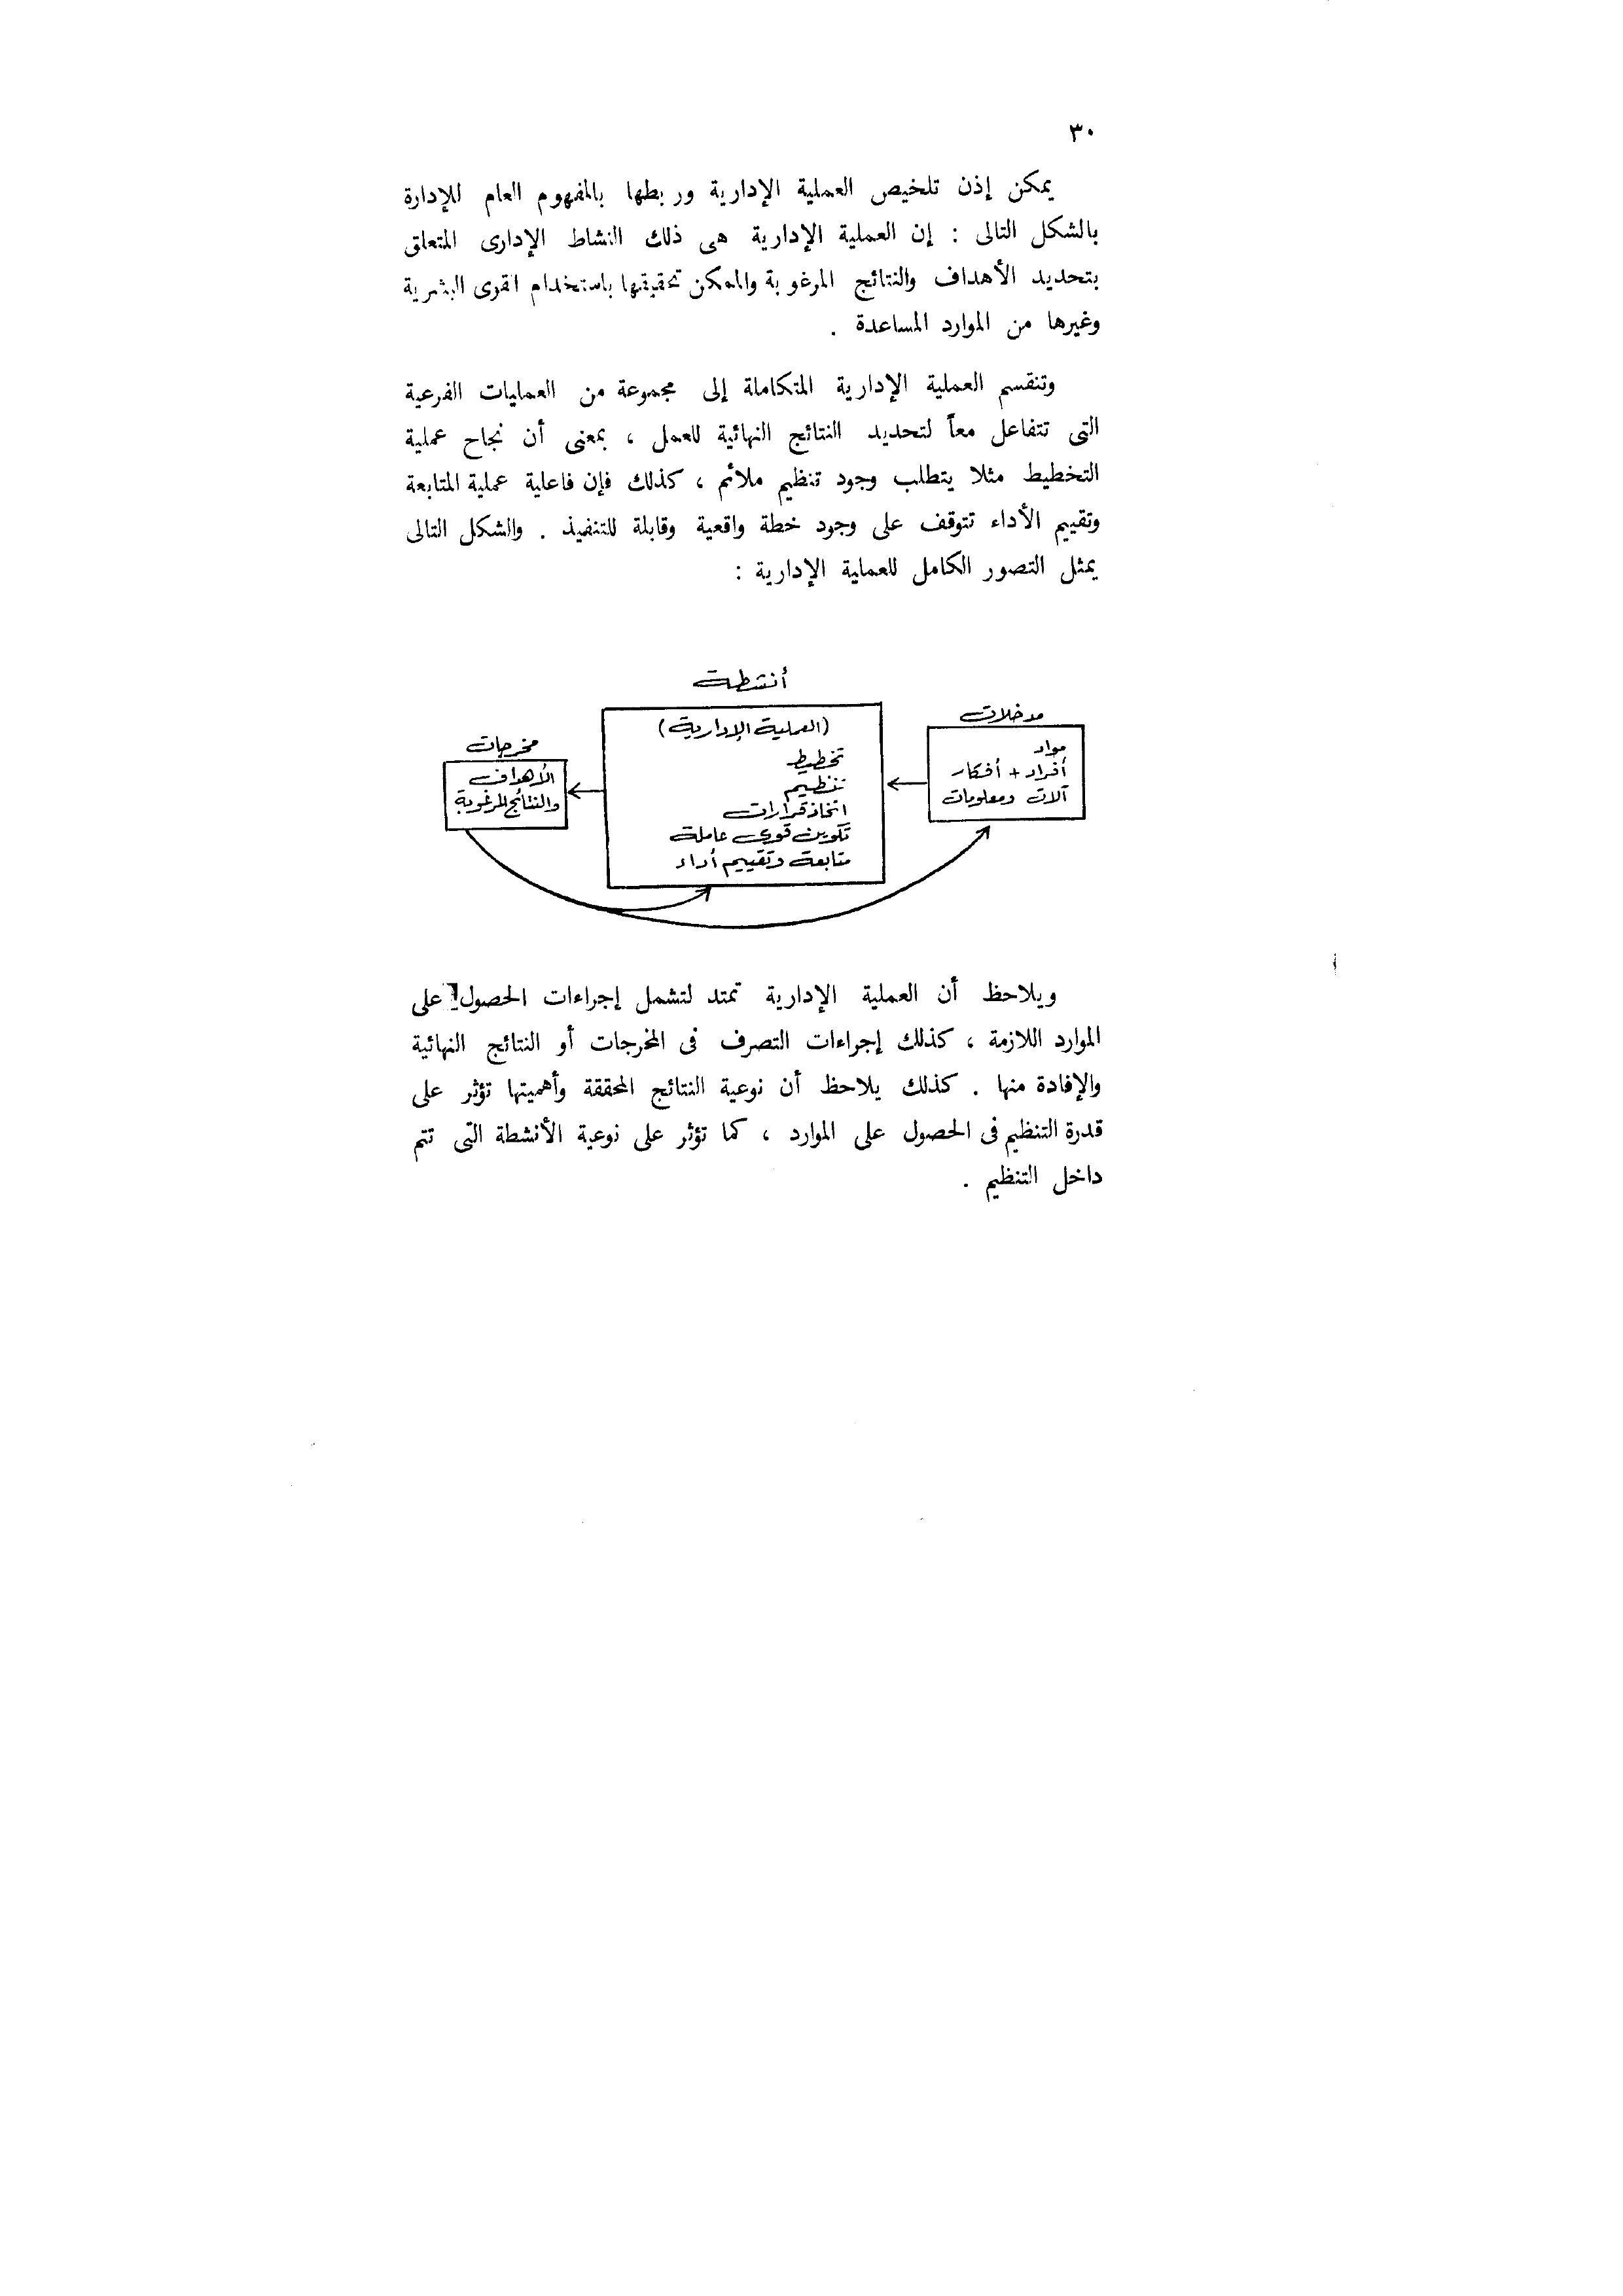 ٣٠
يمكن إذن تلخيص العملية الإدارية وربطها بالمفهوم العام للإدارة
بالشكل التالى : إن العملية الإدارية هى ذلك النشاط الإدارى المتعلق
بتحديد الأهداف والنتائج المرغوبة والممكن تحقيقها باستخدام القوى البشرية
وغيرها من الموارد المساعدة .
وتنقسم العملية الإدارية المتكاملة إلى مجموعة من العمليات الفرعية
التى تتفاعل معاً لتحديد النتائج النهائية للعمل ، بمعنى أن نجاح عملية
التخطيط مثلا يتطلب وجود تنظيم ملائم ، كذلك فإن فاعلية عملية المتابعة
وتقييم الأداء تتوقف على وجود خطة واقعية وقابلة للتنفيذ . والشكل التالى
يمثل التصور الكامل للعملية الإدارية :
مدخلات
مواد
أفراد + أفكار
آلات ومعلومات
أنشطة
(العملية الإدارية)
تخطيط
تنظيم
اتخاذ قرارات
تكوين قوى عاملة
متابعة وتقييم أداء
مخرجات
الأهداف
والنتائج المرغوبة
ويلاحظ أن العملية الإدارية تمتد لتشمل إجراءات الحصول على
الموارد اللازمة ، كذلك إجراءات التصرف فى المخرجات أو النتائج النهائية
والإفادة منها . كذلك يلاحظ أن نوعية النتائج المحققة وأهميتها تؤثر على
قدرة التنظيم فى الحصول على الموارد ، كما تؤثر على نوعية الأنشطة التى تتم
داخل التنظيم .